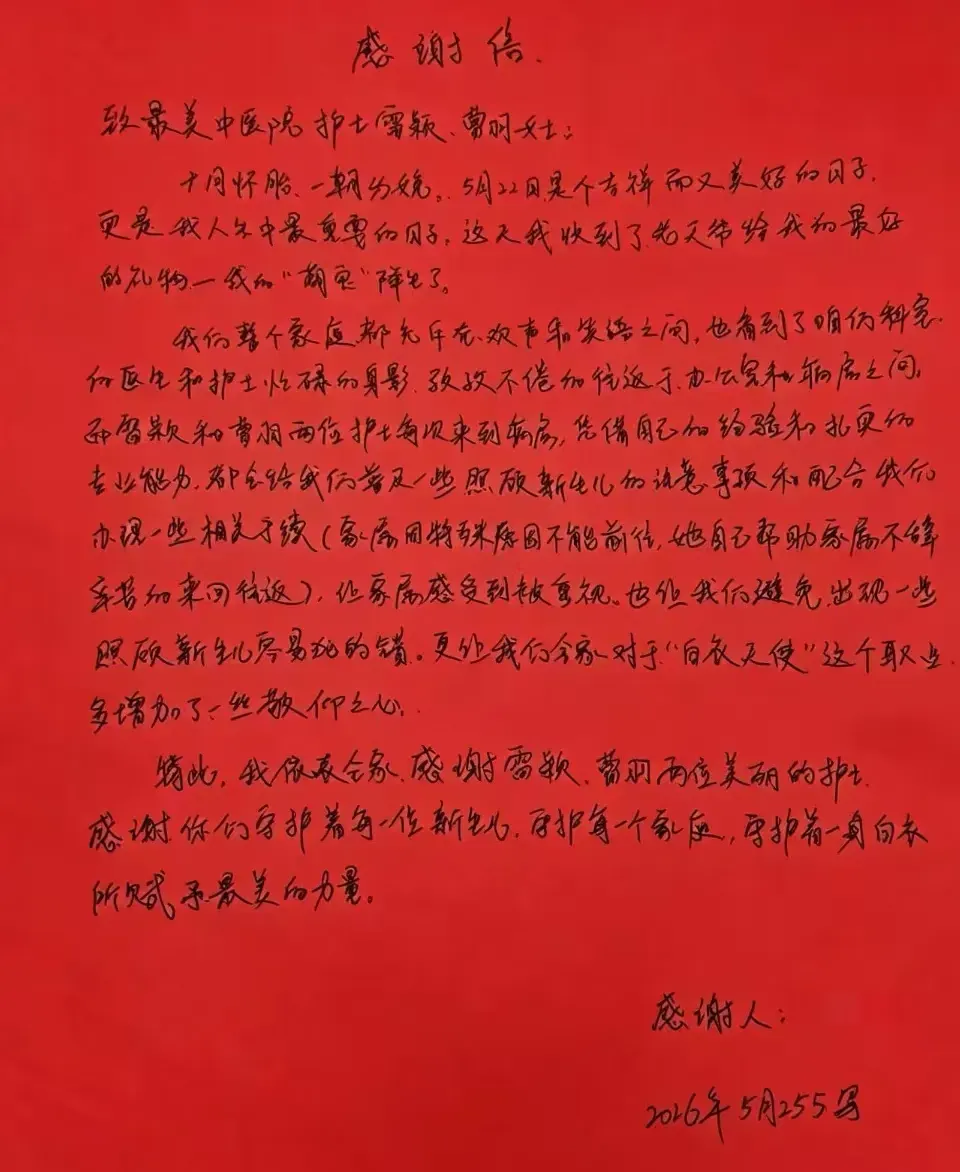 感谢信.
致最美中医院护士雷颖、曹羽女士:
十月怀胎、一朝分娩。5月22日是个吉祥而又美好的日子.
更是我人生中最重要的日子。这天我收到了老天带给我的最好
的礼物—我的“萌宝”降生了。
我们整个家庭都充斥在欢声和笑语之间,也看到了咱们科室
的医生和护士忙碌的身影.孜孜不倦的往返于办公室和病房之间,
而雷颖和曹羽两位护士每次来到病房,凭借自己的经验和扎实的
专业能力.都会给我们普及一些照顾新生儿的注意事项和配合我们
办理一些相关手续(家属因特殊原因不能前往,她自己帮助家属不辞
辛苦的来回往返),让家属感受到被重视。也让我们避免出现一些
照顾新生儿容易犯的错。更让我们全家对于“白衣天使”这个职业
多增加了一些敬仰之心.
特此,我代表全家.感谢雷颖、曹羽两位美丽的护士.
感谢你们守护着每一位新生儿.守护每一个家庭,守护着一身白衣
所赋予最美的力量。
感谢人:
2026年5月255写